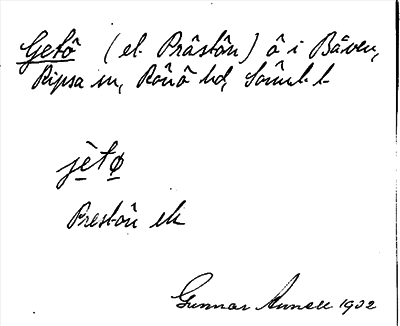 Getö (el. Prästön) ö i Båven,
Ripsa sn, Rönö hd, Söml. l.
jètø
Prestön ek
Gunnar Annell 1932